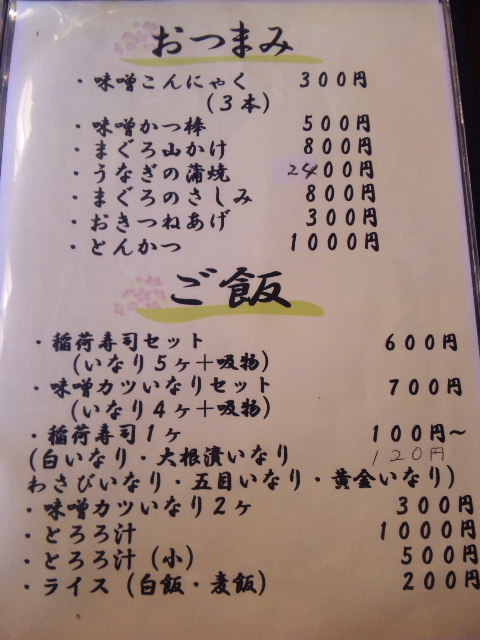 おつまみ
・味噌こんにゃく 300円
(3本)
・味噌かつ棒 500円
・まぐろ山かけ 800円
・うなぎの蒲焼 2400円
・まぐろのさしみ 800円
・おきつねあげ 300円
・とんかつ 1000円
ご飯
・稲荷寿司セット 600円
(いなり5ヶ+吸物)
・味噌カツいなりセット 700円
(いなり4ヶ+吸物)
・稲荷寿司1ヶ 100円~
(白いなり・大根漬いなり 120円
わさびいなり・五目いなり・黄金いなり)
・味噌カツいなり2ヶ 300円
・とろろ汁 1000円
・とろろ汁(小) 500円
・ライス(白飯・麦飯) 200円